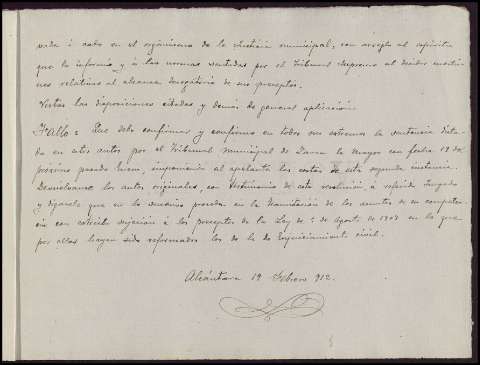 vada á cabo en el organismo de la justicia municipal, con arreglo al espíritu
que la informa y á las normas sentadas por el Tribunal Supremo al decidir cuestio-
nes relativas al alcance derogatorio de sus preceptos.
Vistas las disposiciones citadas y demás de general aplicación
Fallo: Que debo confirmar y confirmo en todos sus extremos la sentencia dicta-
da en estos autos por el Tribunal municipal de la Mayor con fecha 19 del
próximo pasado Enero, imponiendo al apelante las costas de esta segunda instancia.
Devuélvanse los autos originales, con testimonio de esta resolución, á referido Juzgado
y dígasele que en lo sucesivo proceda en la tramitación de los asuntos de su competen-
cia con estricta sujeción á los preceptos de la Ley de 5 de Agosto de 1907 en lo que
por ellos hayan sido reformados los de la de Enjuiciamiento civil.
Alcántara 19 Febrero 912.